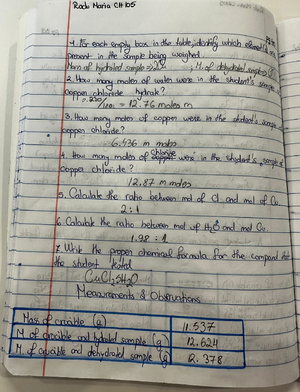 Rada Maria CH105
1. For each empty box in the table, identify which element
in the sample being weighed.
Mass of hydrated sample M. of dehydrated sample
2. How many moles of water were in the student's sample
copper chloride hydrate?
= 12.76 moles m
3. How many moles of copper were in the student's sample
copper chloride?
6.436 m moles
4. How many moles of chloride were in the student's sample of
copper chloride?
12.87 m moles
5. Calculate the ratio between mol of Cl and mol of Cu.
2:1
6. Calculate the ratio between mol of H₂O and mol Cu.
1.98 : 1
7. Write the proper chemical formula for the compound that
the student tested
CuCl₂ H₂O
Measurements & Observations
Mass of crucible (g) 11.537
M of crucible and hydrated sample (g) 12.624
M. of crucible and dehydrated sample (g) 2.378